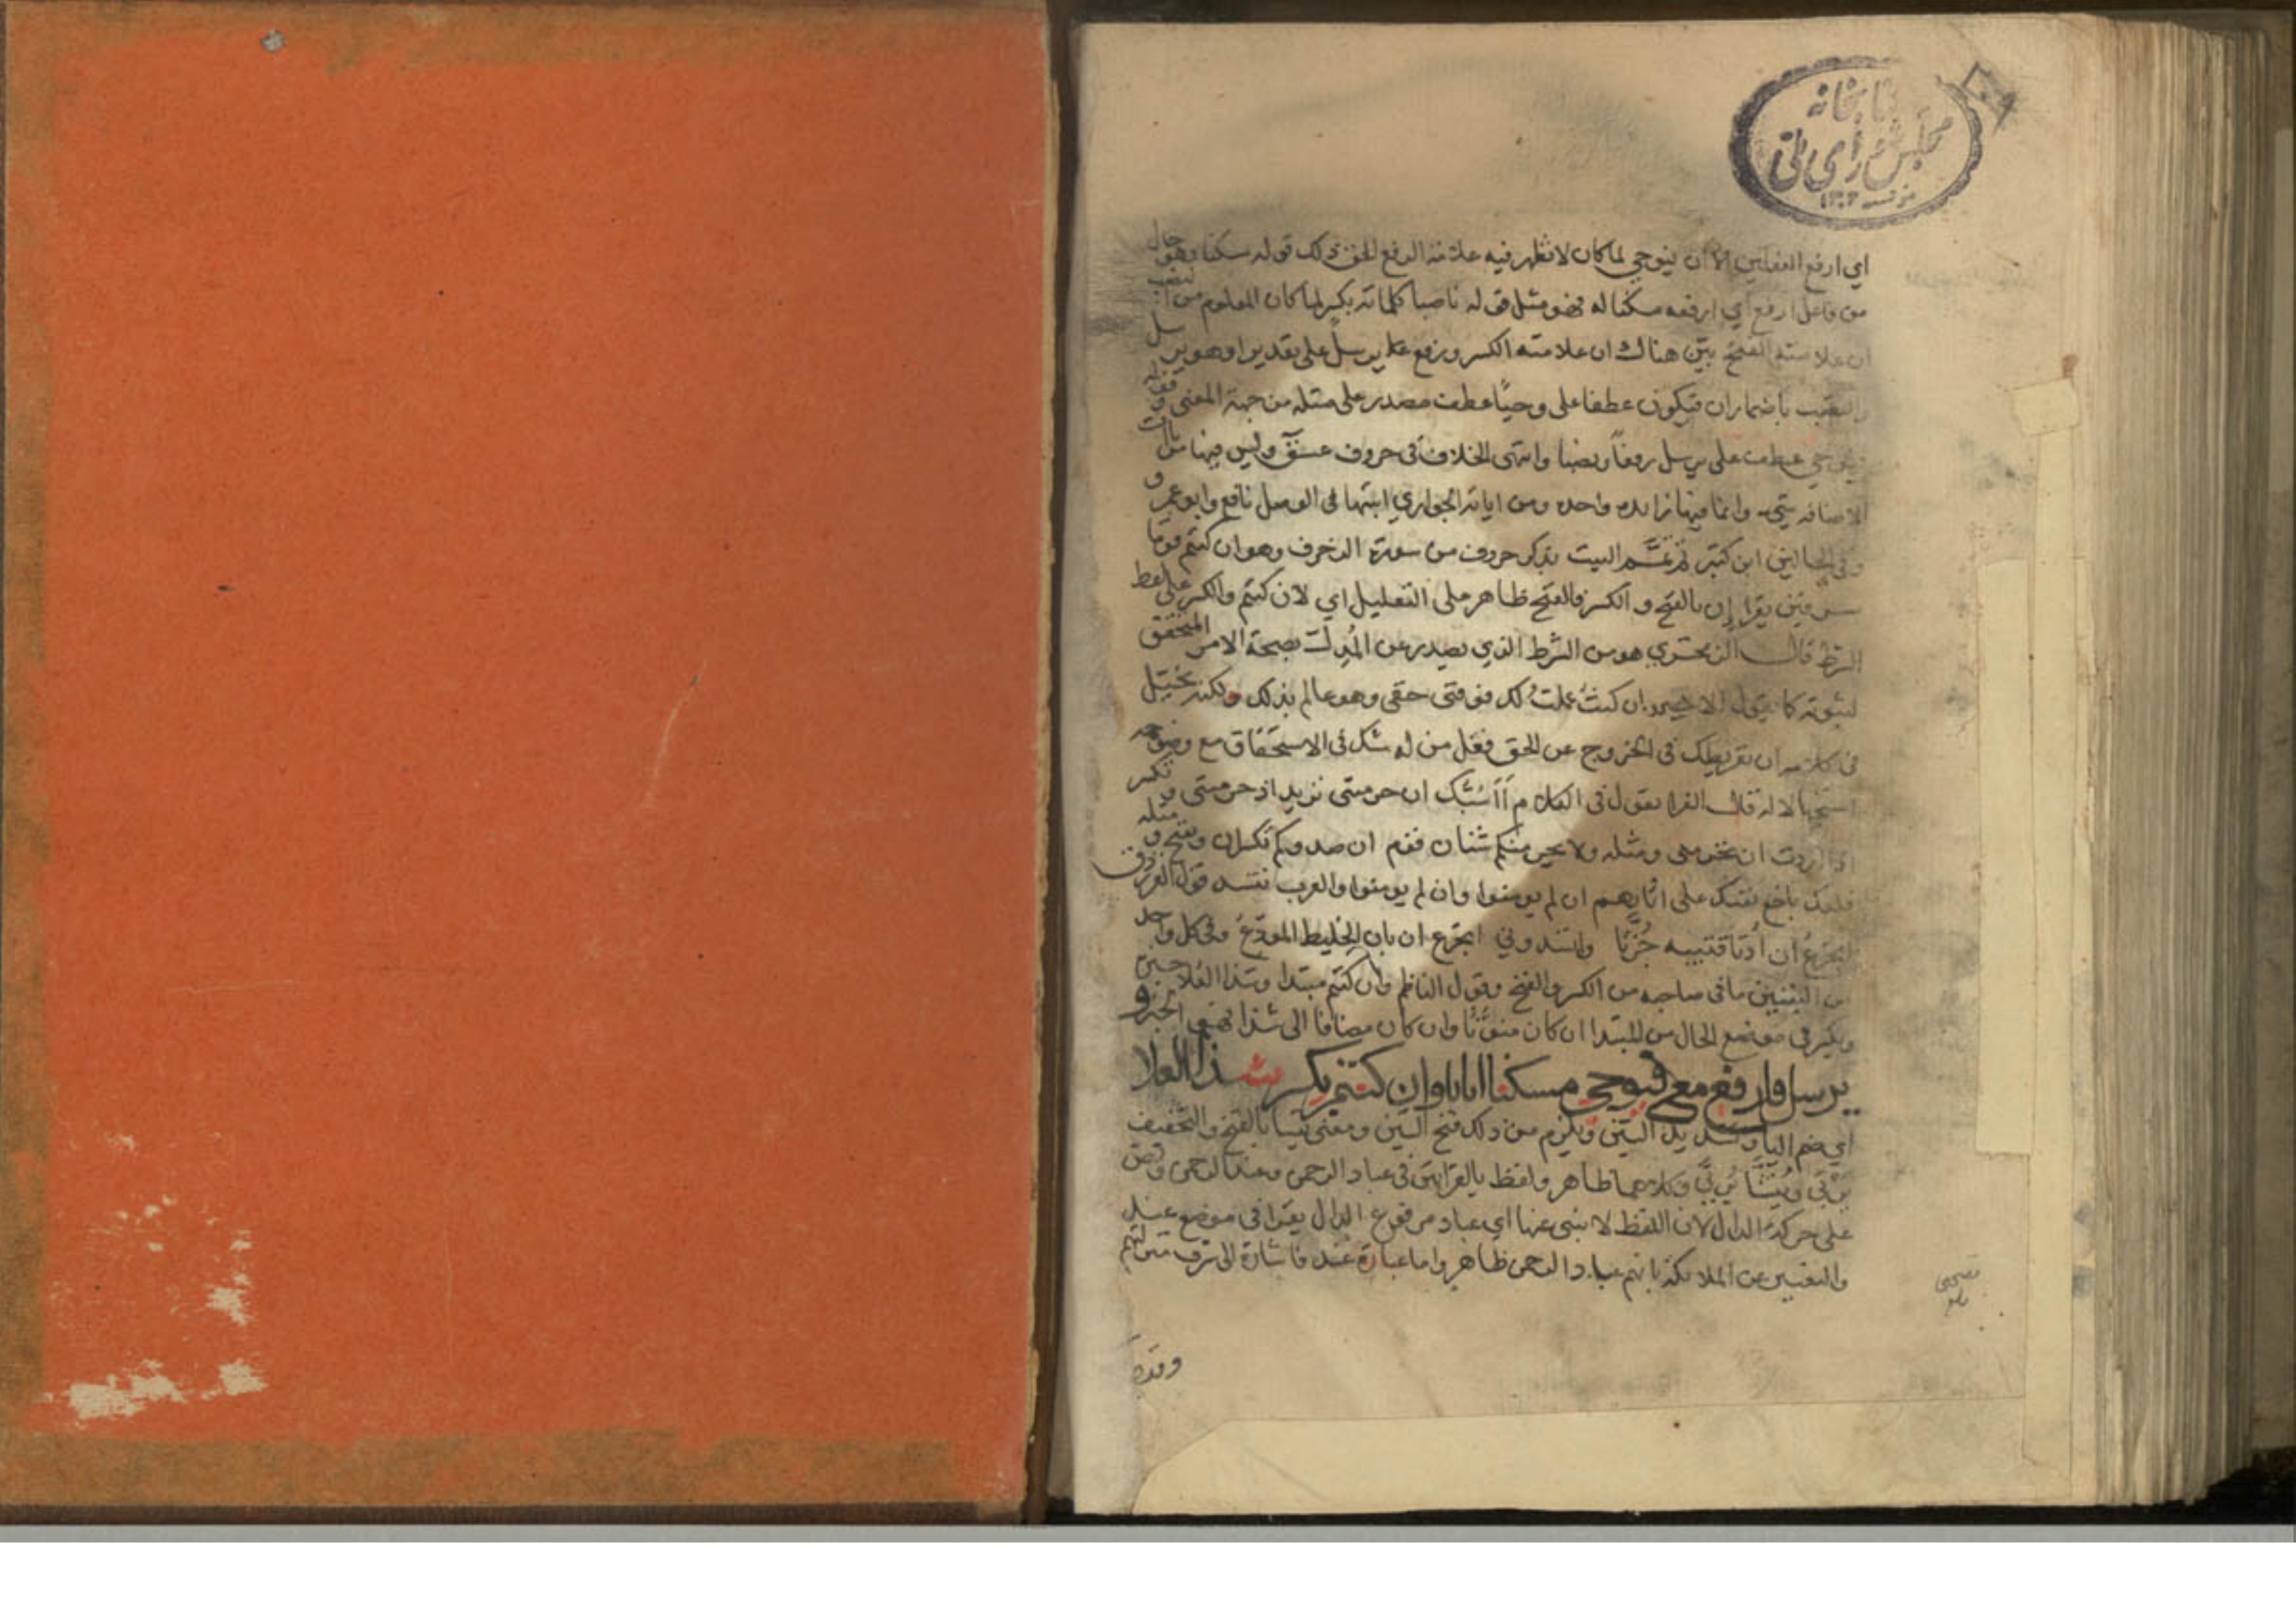 كتابخانه
مجلس شورای ملی
اي ارفع الفعلين الا ان فيوحي لما كان لا تظهر فيه علامة الرفع الحق ذلك قوله مسكنا وهو حال
من فاعل ارفع اي ارفعه مسكنا له فهو مثل قوله ناصبا كلماته بكسر لما كان المعلوم من النصب
ان علامته الفتح بين هناك ان علامته الكسر ورفع يرسل على تقدير او هو يرسل
والنصب باضمار ان فيكون عطفا على وحيًا عطف مصدر على مثله من جهة المعنى وقوله
فيوحي عطف على يرسل رفعًا ونصبا وانتهى الخلاف في حروف عسق وليس فيها من ياات
الاضافه شيء وانما فيها زايده واحده ومن اياته الجواري اثبتها في الوصل نافع وابو عمرو
وفي الحالين ابن كثير ثم تمَّم البيت بذكر حروف من سورة الزخرف وهو ان كنتم قومًا
مسرفين يقرا إن بالفتح والكسر فالفتح ظاهر على التعليل اي لان كنتم والكسر على لفظ
الشرط قال الزمخشري هو من الشرط الذي يصدر عن المُدِلّ بصحة الامر المتحقق
لثبوته كما يقول الاجير ان كنتُ عملتُ لك فوفني حقي وهو عالم بذلك ولكنه يخيّل
في كلامه ان تفريطك في الخروج عن الحق فعل من له شك في الاستحقاق مع وضوحه
استجهالا له قال الفرا يقول في الكلام أأسُبُّك ان حرمتني تريد اذ حرمتني وتكسر
اذا اردت ان تحرمني ومثله ولا يجرمنكم شنان قوم ان صدوكم تكسر ان وتفتح ومثله
فلعلك باخع نفسك على اثارهم ان لم يومنوا وان لم يومنوا والعرب تنشد قول الفرزدق
اتجزع ان أُذنا قتيبه حُزَّتا وانشدوني اتجزع ان بان الخليط المودّع وفي كل واحد
من البيتين ما في صاحبه من الكسر والفتح وقول الناظم وان كنتم مبتدا وشذا العُلا خبره
وبكسر في موضع الحال من المبتدا ان كان منوَّنًا وان كان مضافا الى شذا فهو الخبر و
يرسل فارفع مع فيوحي مسكنا اتانا وان كنتم بكسر شذا العلا
اي ضم اليا وتشديد الشين ويلزم من ذلك فتح النون ومعنى ينشا بالفتح والتخفيف
يَرْبَى ويُنَشَّا يُربَّى وكلاهما ظاهر ولفظ بالقراتين في عباد الرحمن وعند الرحمن ونص
على حركة الدال لان اللفظ لا ينبي عنها اي عباد مرفوع الدال يقرا في موضع عند
والتعبير عن الملائكة بانهم عباد الرحمن ظاهر واما عبارة عند فاشارة الى شرف منزلتهم